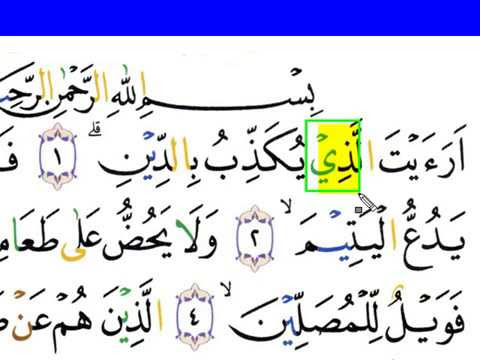 بِسْمِ اللّٰهِ الرَّحْمٰنِ الرَّحِ
اَرَءَيْتَ الَّذِيْ يُكَذِّبُ بِالدِّيْنِۗ ١ فَ
يَدُعُّ الْيَتِيْمَۙ ٢ وَلَا يَحُضُّ عَلٰى طَعَامِ
فَوَيْلٌ لِّلْمُصَلِّيْنَۙ ٤ الَّذِيْنَ هُمْ عَنْ صَ